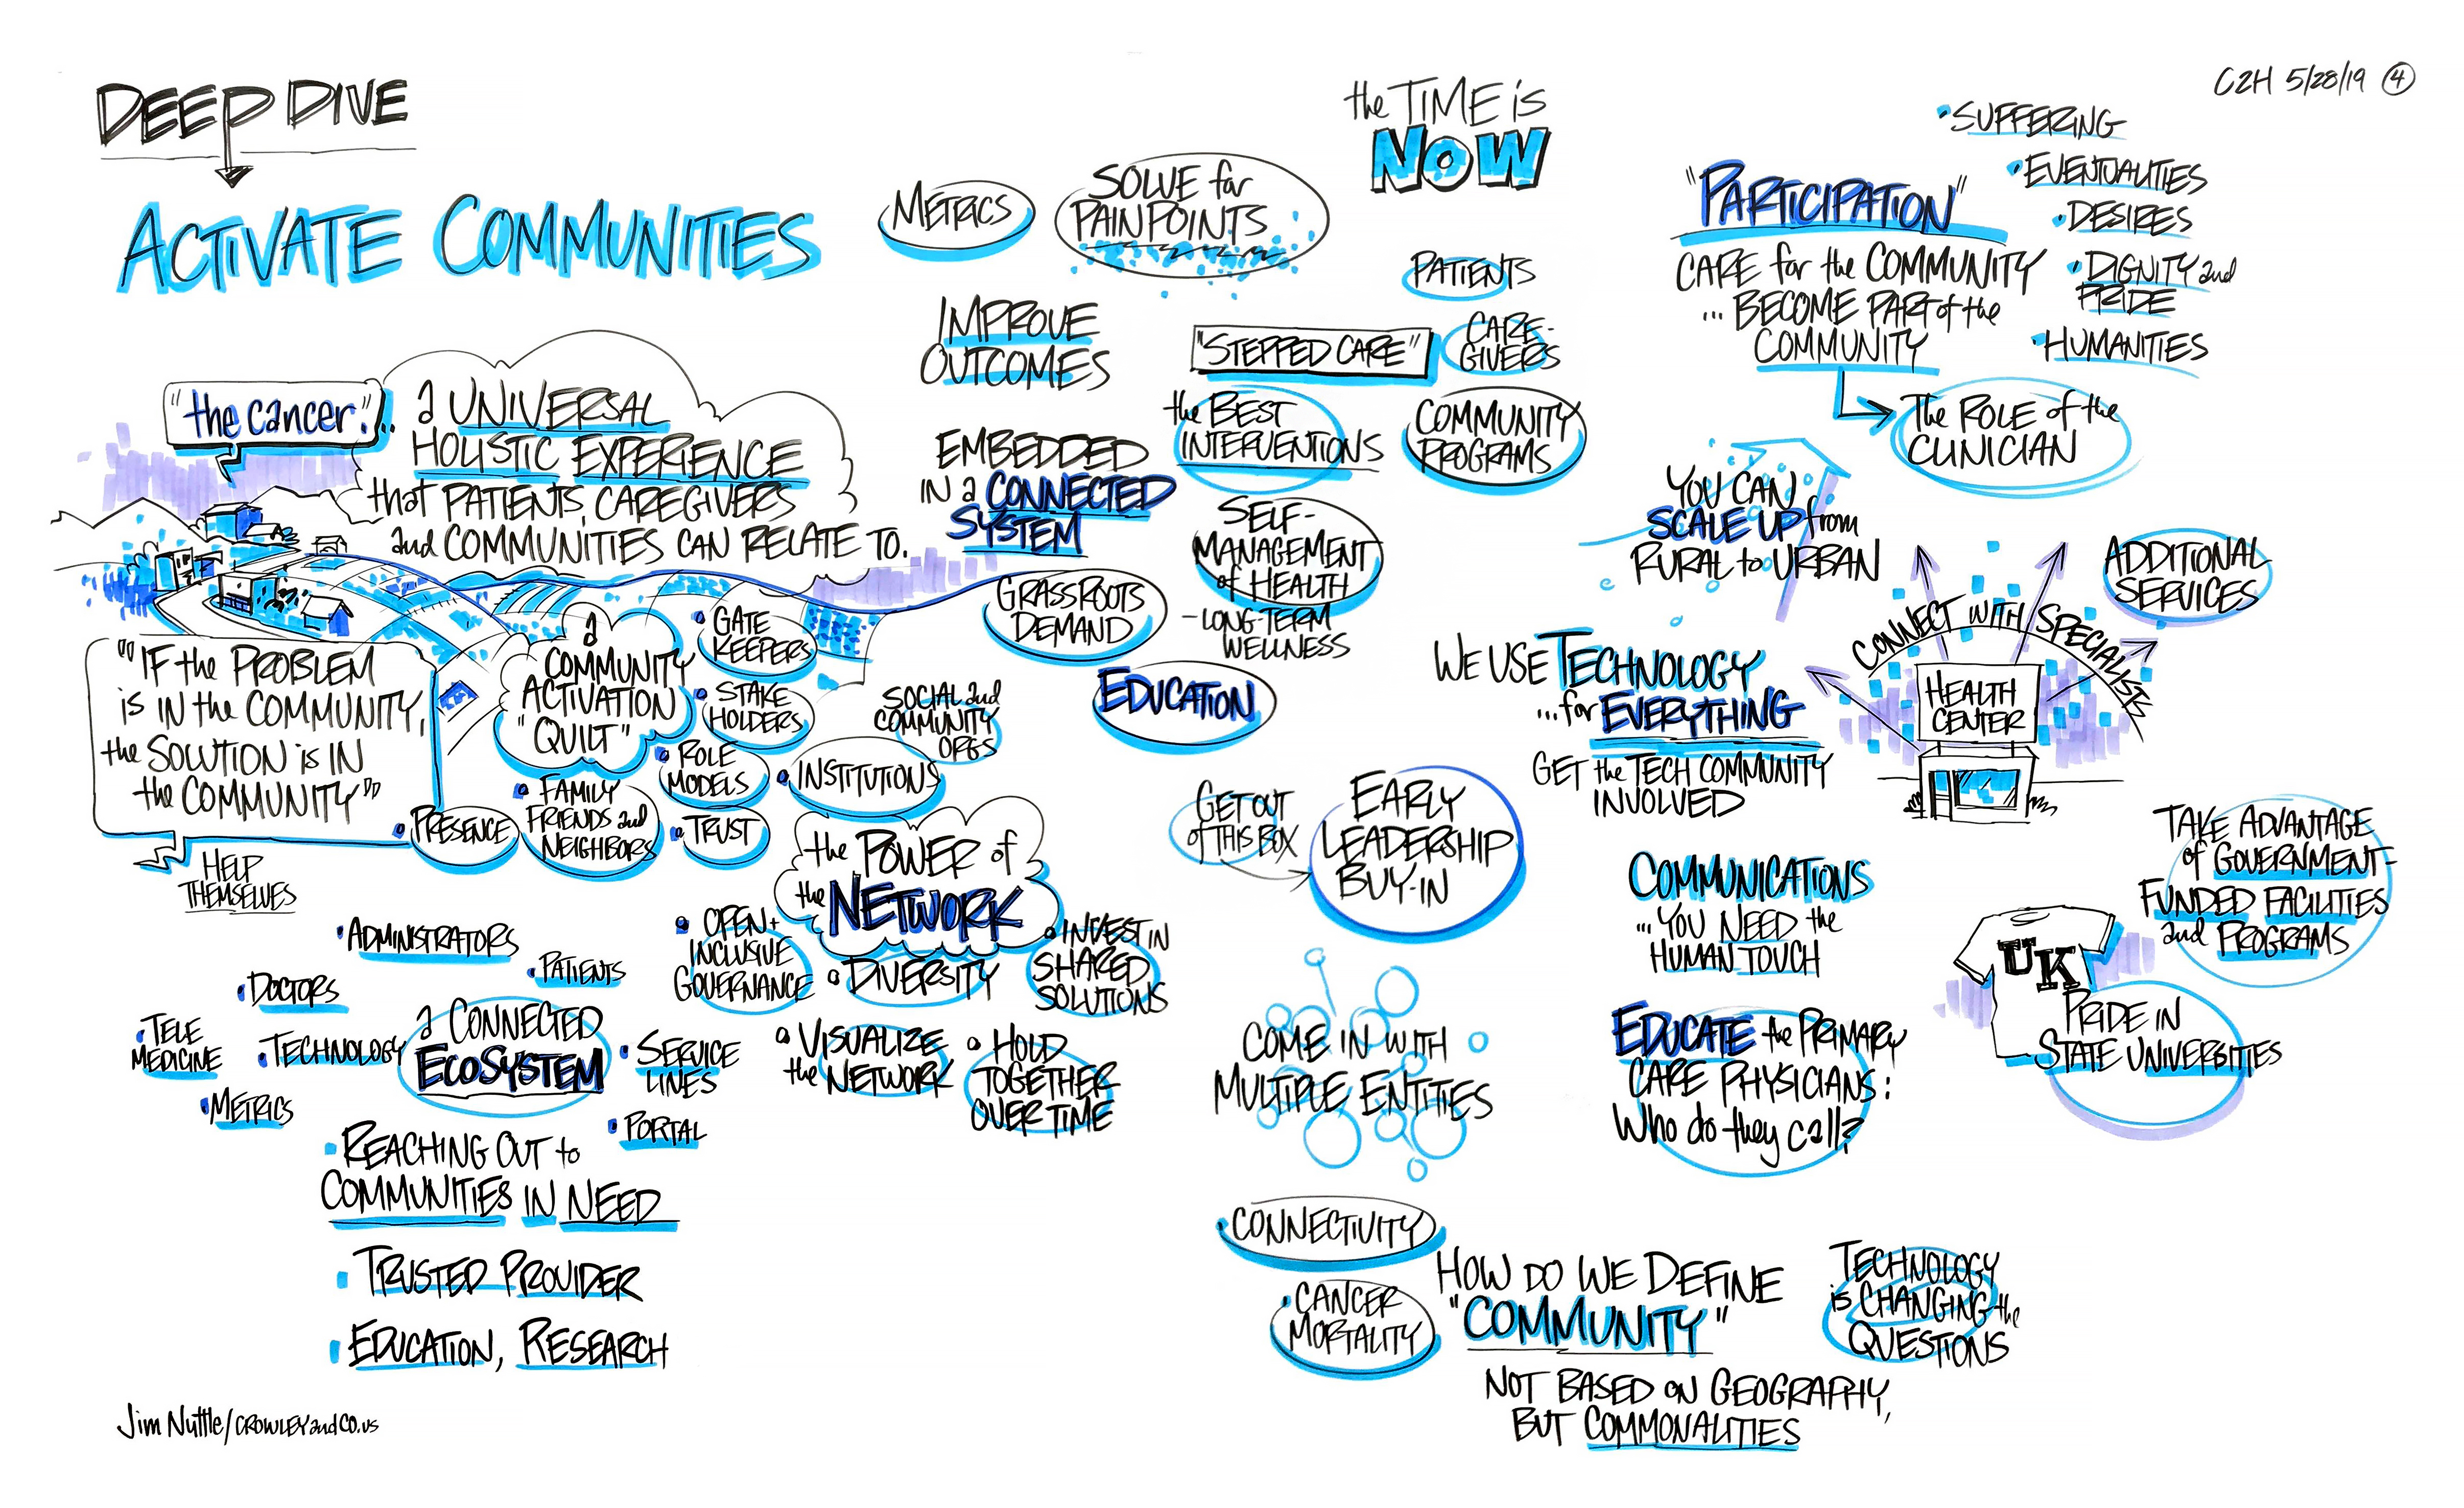 DEEP DIVE
ACTIVATE COMMUNITIES
"the cancer."..
a UNIVERSAL
HOLISTIC EXPERIENCE
that PATIENTS, CAREGIVERS
and COMMUNITIES CAN RELATE TO.
"IF the PROBLEM
is IN the COMMUNITY,
the SOLUTION is IN
the COMMUNITY"
HELP
THEMSELVES
a
COMMUNITY
ACTIVATION
"QUILT"
• GATE
KEEPERS
• STAKE
HOLDERS
• ROLE
MODELS
• INSTITUTIONS
SOCIAL and
COMMUNITY
ORGS
• PRESENCE
• FAMILY
FRIENDS and
NEIGHBORS
• TRUST
the POWER of
the NETWORK
• OPEN +
INCLUSIVE
GOVERNANCE
• DIVERSITY
• INVEST IN
SHARED
SOLUTIONS
• VISUALIZE
the NETWORK
• HOLD
TOGETHER
OVER TIME
• ADMINISTRATORS
• PATIENTS
• DOCTORS
• TELE
MEDICINE
• TECHNOLOGY
a CONNECTED
ECOSYSTEM
• SERVICE
LINES
• METRICS
• PORTAL
• REACHING OUT to
COMMUNITIES IN NEED
• TRUSTED PROVIDER
• EDUCATION, RESEARCH
Jim Nuttle/CROWLEYandCO.US
the TIME is
NOW
METRICS
SOLVE for
PAIN POINTS
PATIENTS
IMPROVE
OUTCOMES
"STEPPED CARE"
CARE-
GIVERS
the BEST
INTERVENTIONS
COMMUNITY
PROGRAMS
EMBEDDED
IN a CONNECTED
SYSTEM
SELF-
MANAGEMENT
of HEALTH
- LONG-TERM
WELLNESS
GRASSROOTS
DEMAND
EDUCATION
GET OUT
of THIS BOX
EARLY
LEADERSHIP
BUY-IN
COME IN WITH
MULTIPLE ENTITIES
• CONNECTIVITY
• CANCER
MORTALITY
HOW DO WE DEFINE
"COMMUNITY"
NOT BASED ON GEOGRAPHY,
BUT COMMONALITIES
TECHNOLOGY
is CHANGING the
QUESTIONS
C2H 5/28/19 4
"PARTICIPATION"
CARE for the COMMUNITY
... BECOME PART of the
COMMUNITY
• SUFFERING
• EVENTUALITIES
• DESIRES
• DIGNITY and
PRIDE
• HUMANITIES
The ROLE of the
CLINICIAN
YOU CAN
SCALE UP from
RURAL to URBAN
WE USE TECHNOLOGY
...for EVERYTHING
GET the TECH COMMUNITY
INVOLVED
CONNECT WITH SPECIALISTS
HEALTH
CENTER
ADDITIONAL
SERVICES
COMMUNICATIONS
...YOU NEED the
HUMAN TOUCH
TAKE ADVANTAGE
of GOVERNMENT-
FUNDED FACILITIES
and PROGRAMS
UK
PRIDE IN
STATE UNIVERSITIES
EDUCATE the PRIMARY
CARE PHYSICIANS:
Who do they call?